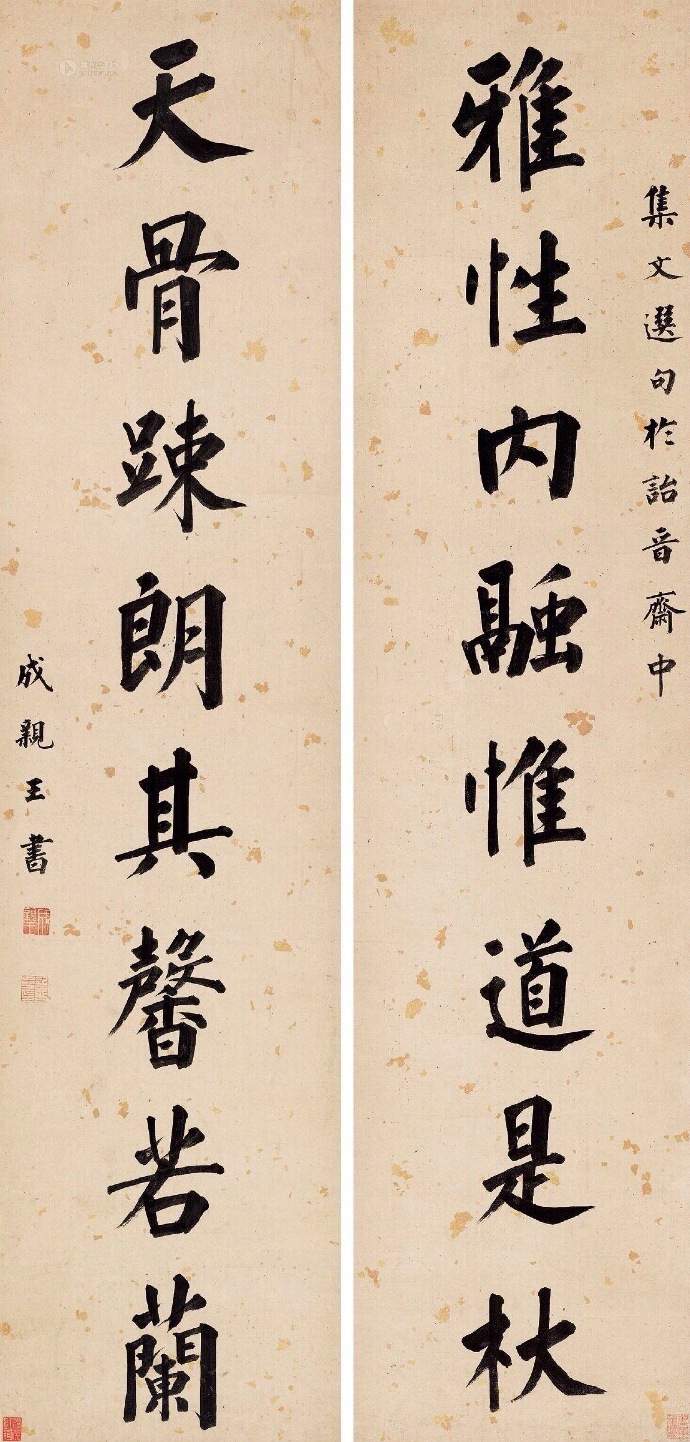 集文選句於詒晉齋中
雅性內融惟道是杖
天骨踈朗其馨若蘭
成親王書